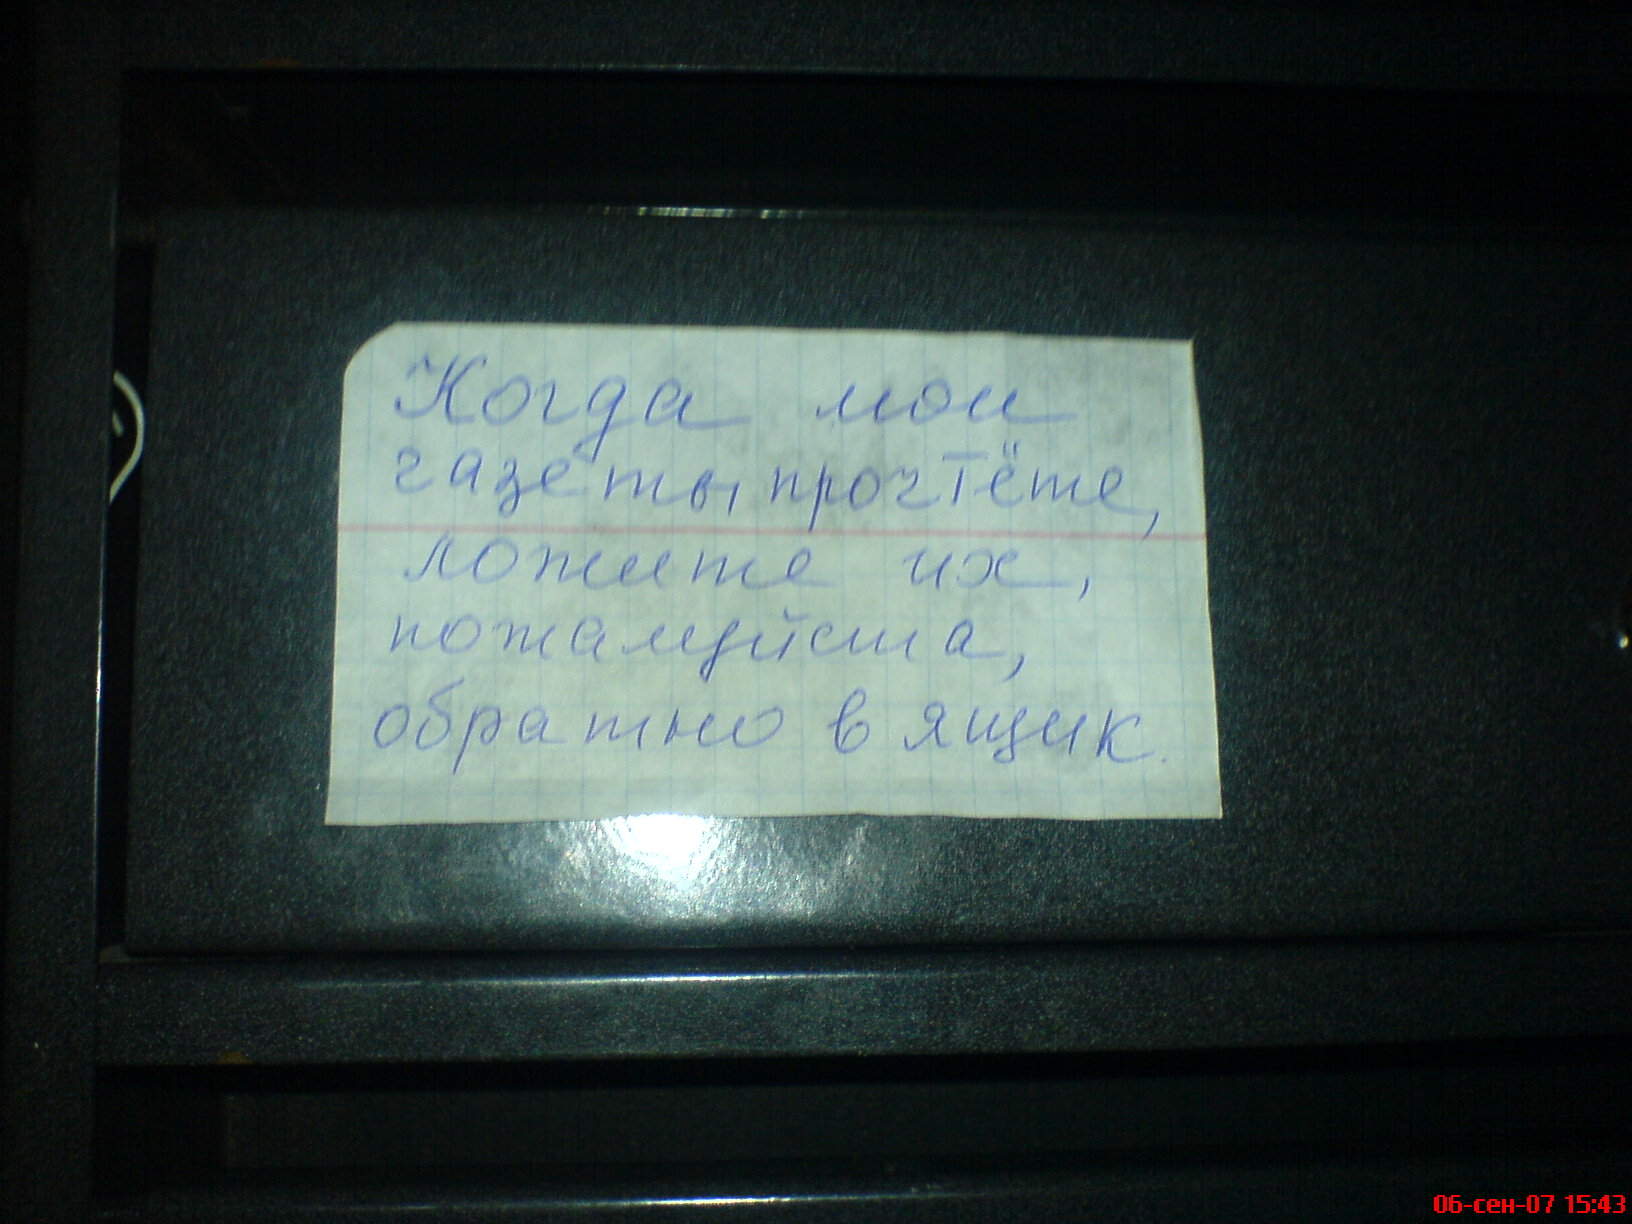 Когда мои
газеты прочтёте,
ложите их,
пожалуйста,
обратно в ящик.
06-сен-07 15:43